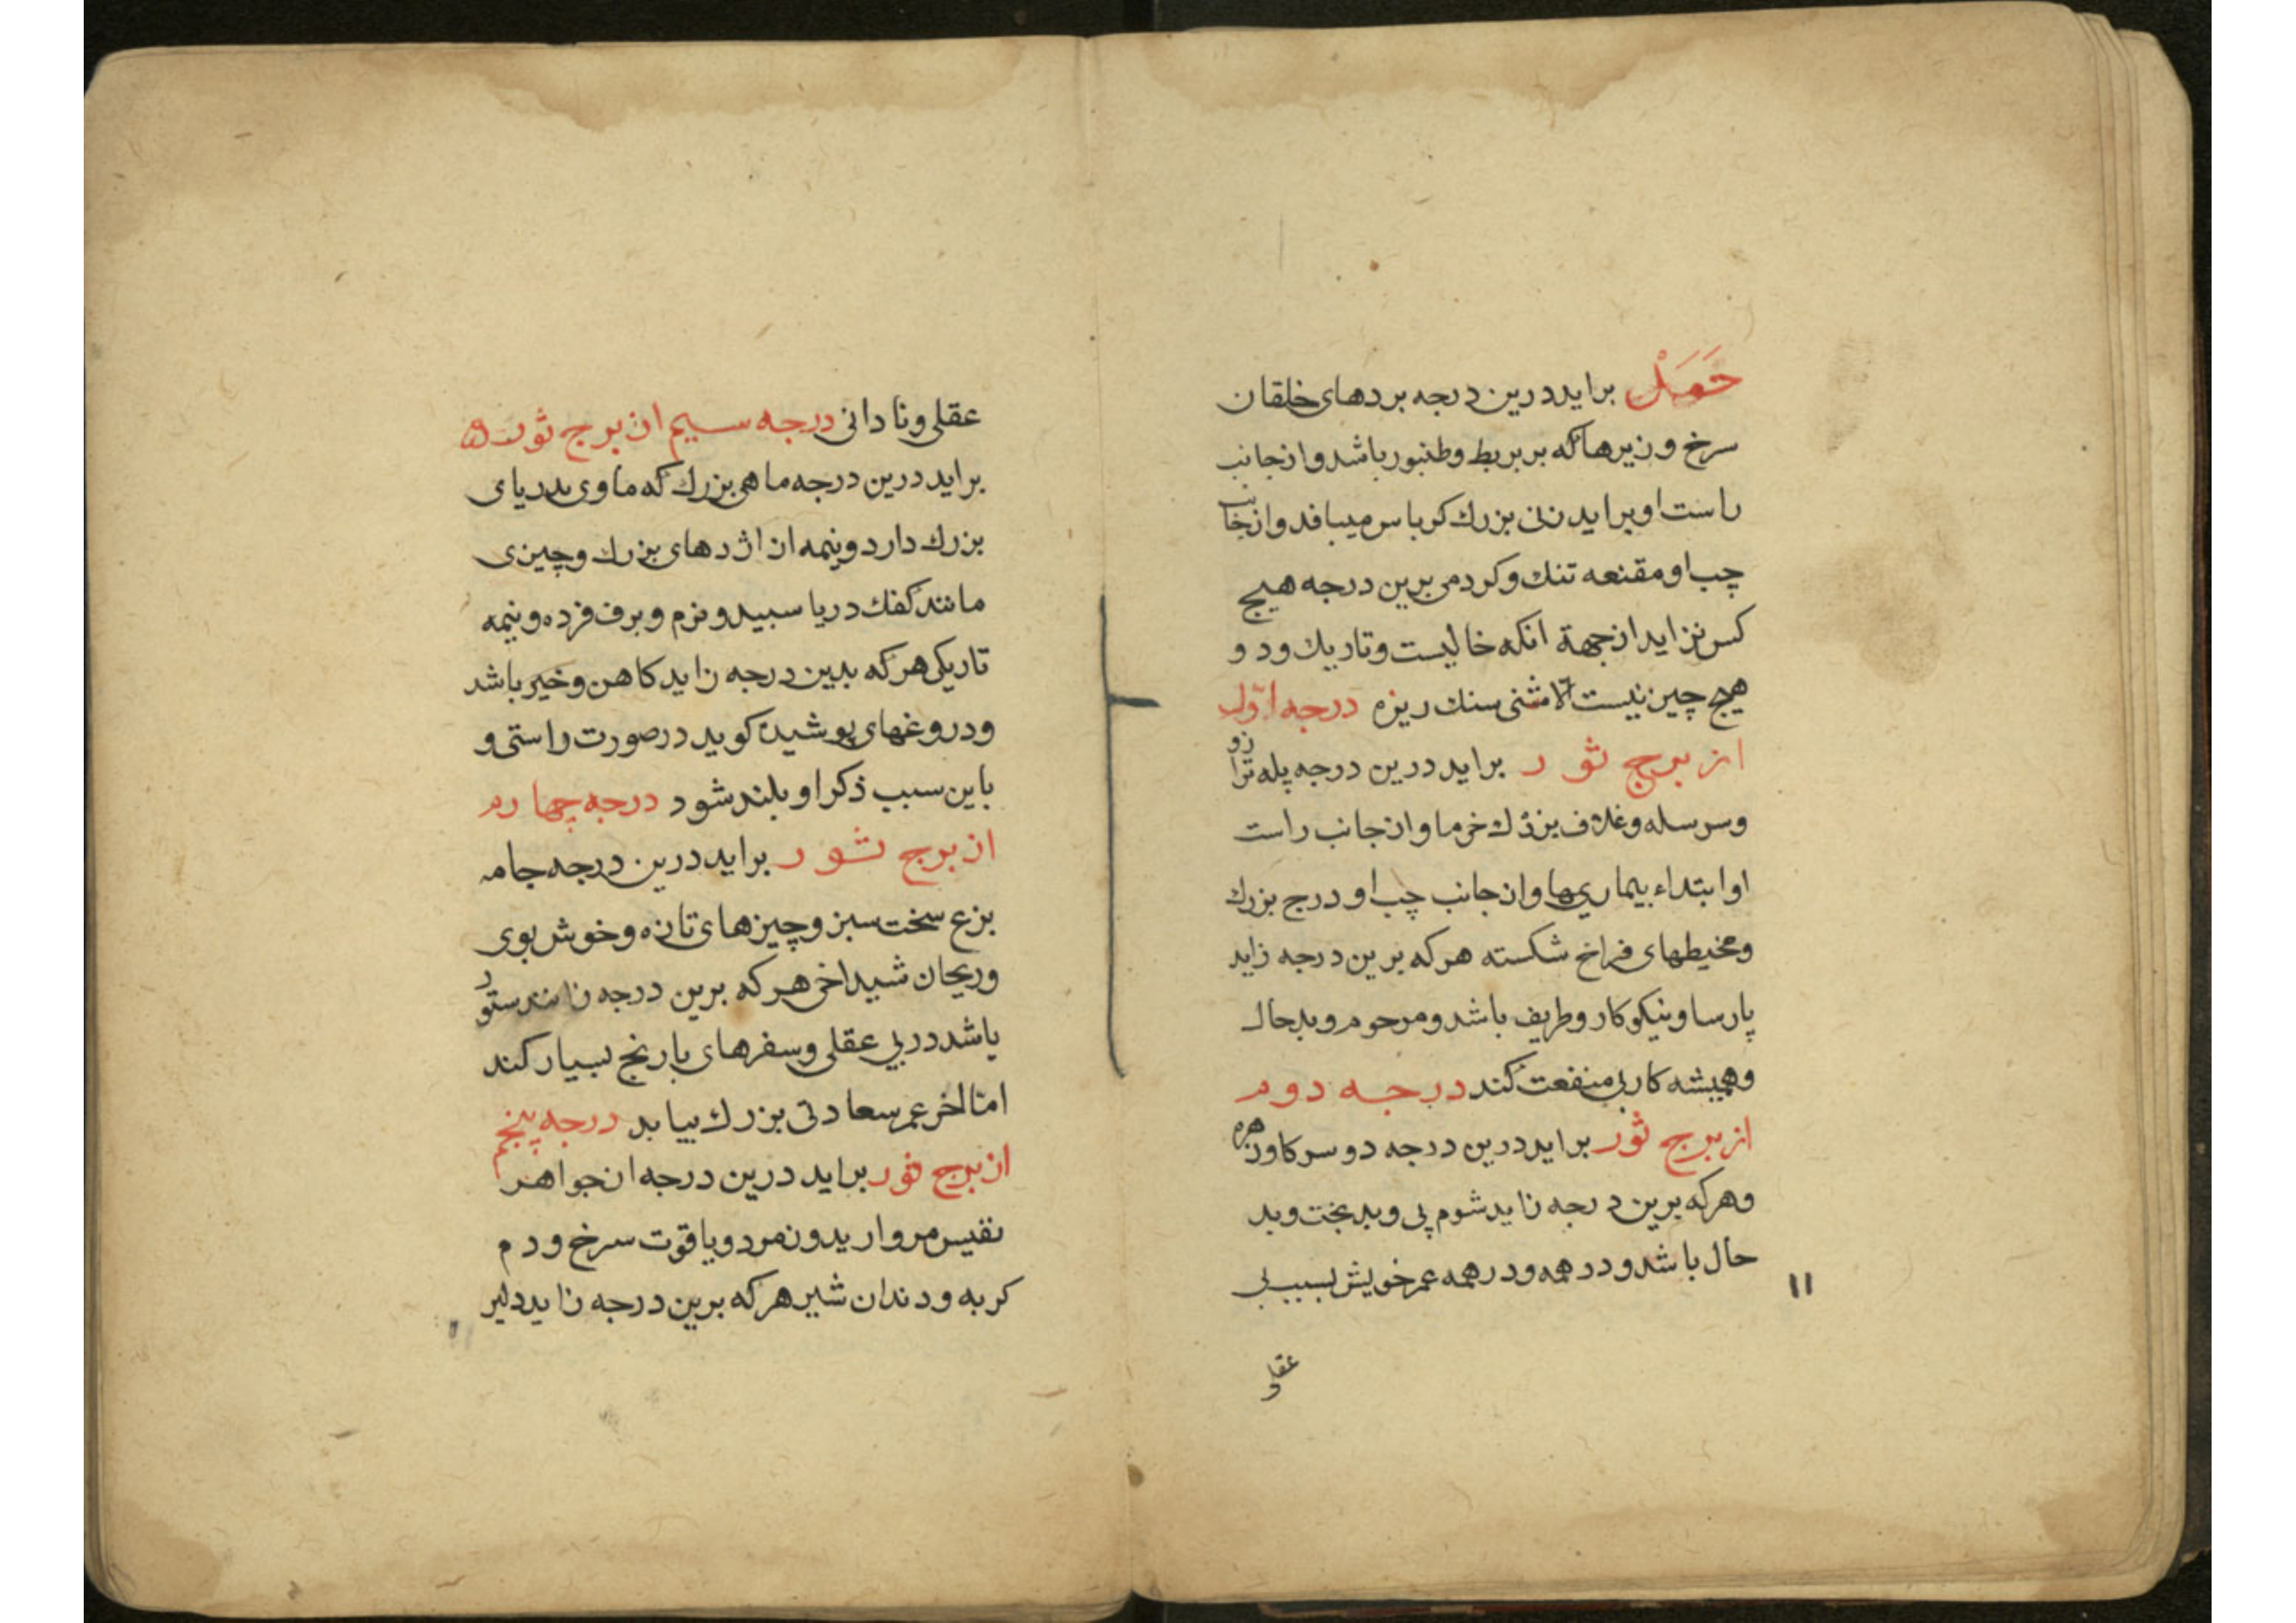 حَمَلْ براید درین درجه بردهای خلقان
سرخ و زیرها که بر بربط و طنبور باشد و از جانب
راست او براید زنی بزرك کرباس میبافد و از جانب
چپ او مقنعه تنك و کردمی برین درجه هیچ
کس نزاید از جهة انکه خالیست و تاریك و دو
هیچ چیز نیست الا مشتی سنك ریزه درجه اوّل
از برج ثور براید درین درجه پله ترازو
و سر سله و غلاف بزرك خرما و از جانب راست
او ابتداء بیماریها و از جانب چپ او درج بزرك
و مخیطهای فراخ شکسته هر که برین درجه زاید
پارسا و نیکو کار و ظریف باشد و مرحوم و بدحال
و همیشه کار بی منفعت کند درجه دوم
از برج ثور براید درین درجه دو سر کاو زهره
و هر که برین درجه زاید شوم پی و بد بخت و بد
حال باشد و در همه و در همه عمر خویش بسبب بی
۱۱
عقلی و
عقلی و نادانی درجه سیم از برج ثور
براید درین درجه ماهی بزرك که ماوی بدریای
بزرك دارد و نیمه از اژدهای بزرك و چیزی
مانند کفك دریا سبید و نرم و برف فزده و نیمه
تاریکی هر که بدین درجه زاید کاهن و خیر باشد
و دروغهای پوشیده کوید در صورت راستی و
باین سبب ذکر او بلند شود درجه چهارم
از برج ثور براید درین درجه جامه
بزع سخت سبز و چیزهای تازه و خوش بوی
و ریحان شیداخی هر که برین درجه زاید ستور
باشد در بی عقلی و سفرهای با رنج بسیار کند
امّا اخر عمر سعادتی بزرك بیابد درجه پنجم
از برج ثور براید درین درجه از جواهر
نفیس مروارید و زمرد و یاقوت سرخ و دم
کربه و دندان شیر هر که برین درجه زاید دلیر